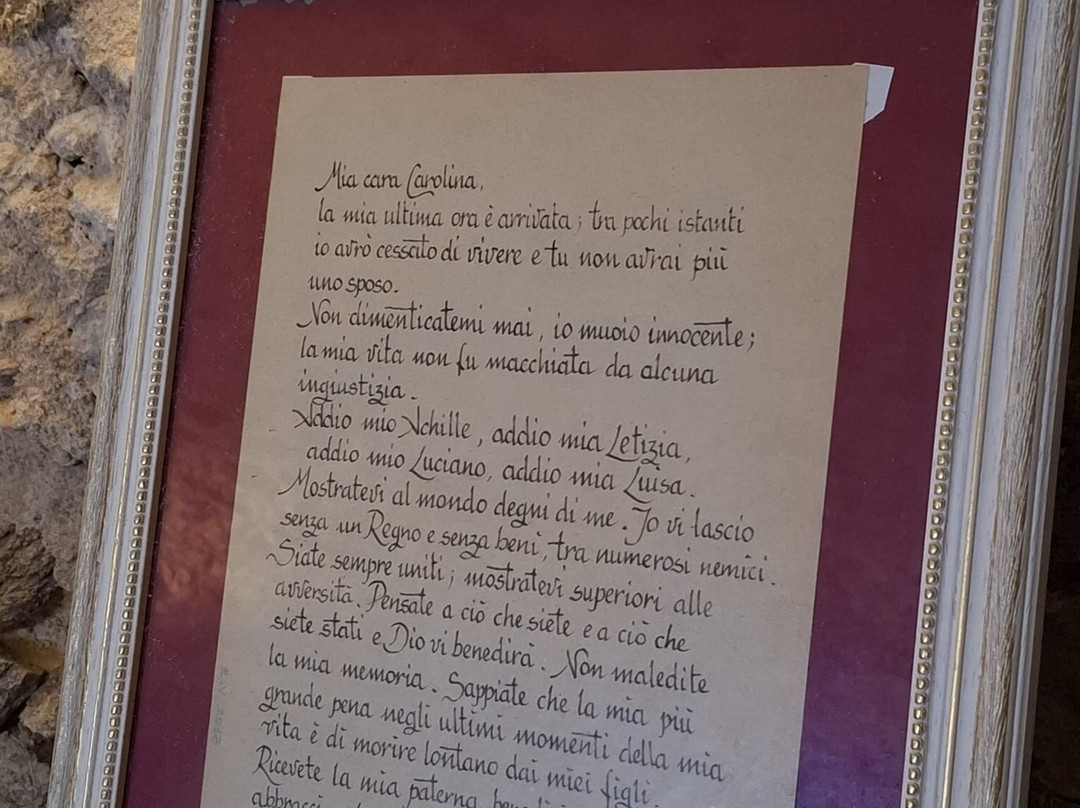 Mia cara Carolina,
la mia ultima ora è arrivata; tra pochi istanti
io avrò cessato di vivere e tu non avrai più
uno sposo.
Non dimenticatemi mai, io muoio innocente;
la mia vita non fu macchiata da alcuna
ingiustizia.
Addio mio Achille, addio mia Letizia,
addio mio Luciano, addio mia Luisa.
Mostratevi al mondo degni di me. Io vi lascio
senza un Regno e senza beni, tra numerosi nemici.
Siate sempre uniti; mostratevi superiori alle
avversità. Pensate a ciò che siete e a ciò che
siete stati e Dio vi benedirà. Non maledite
la mia memoria. Sappiate che la mia più
grande pena negli ultimi momenti della mia
vita è di morire lontano dai miei figli.
Ricevete la mia paterna